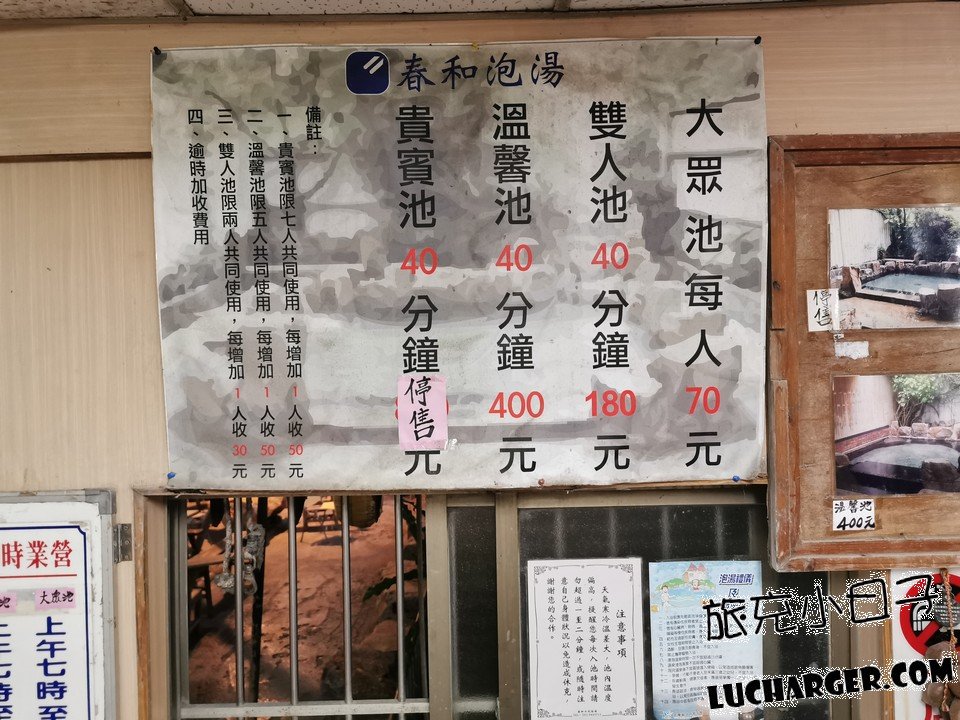 春和泡湯
大眾池每人70元
雙人池40分鐘180元
溫馨池40分鐘400元
貴賓池40分鐘
停售
元
備註：
一、貴賓池限七人共同使用，每增加1人收50元
二、溫馨池限五人共同使用，每增加1人收50元
三、雙人池限兩人共同使用，每增加1人收30元
四、逾時加收費用
停售
湯馨池
400元
時業營
池
大眾池
上午七時至
上午七時至
注意事項
天氣寒冷溫差大，池內溫度
偏高，提醒您每次入池時間請
勿超過一至二分鐘，或隨時注
意自己身體狀況以免造成休克，
謝謝您的合作。
泡湯禮儀
旅充小日子
LUCHARGER.COM